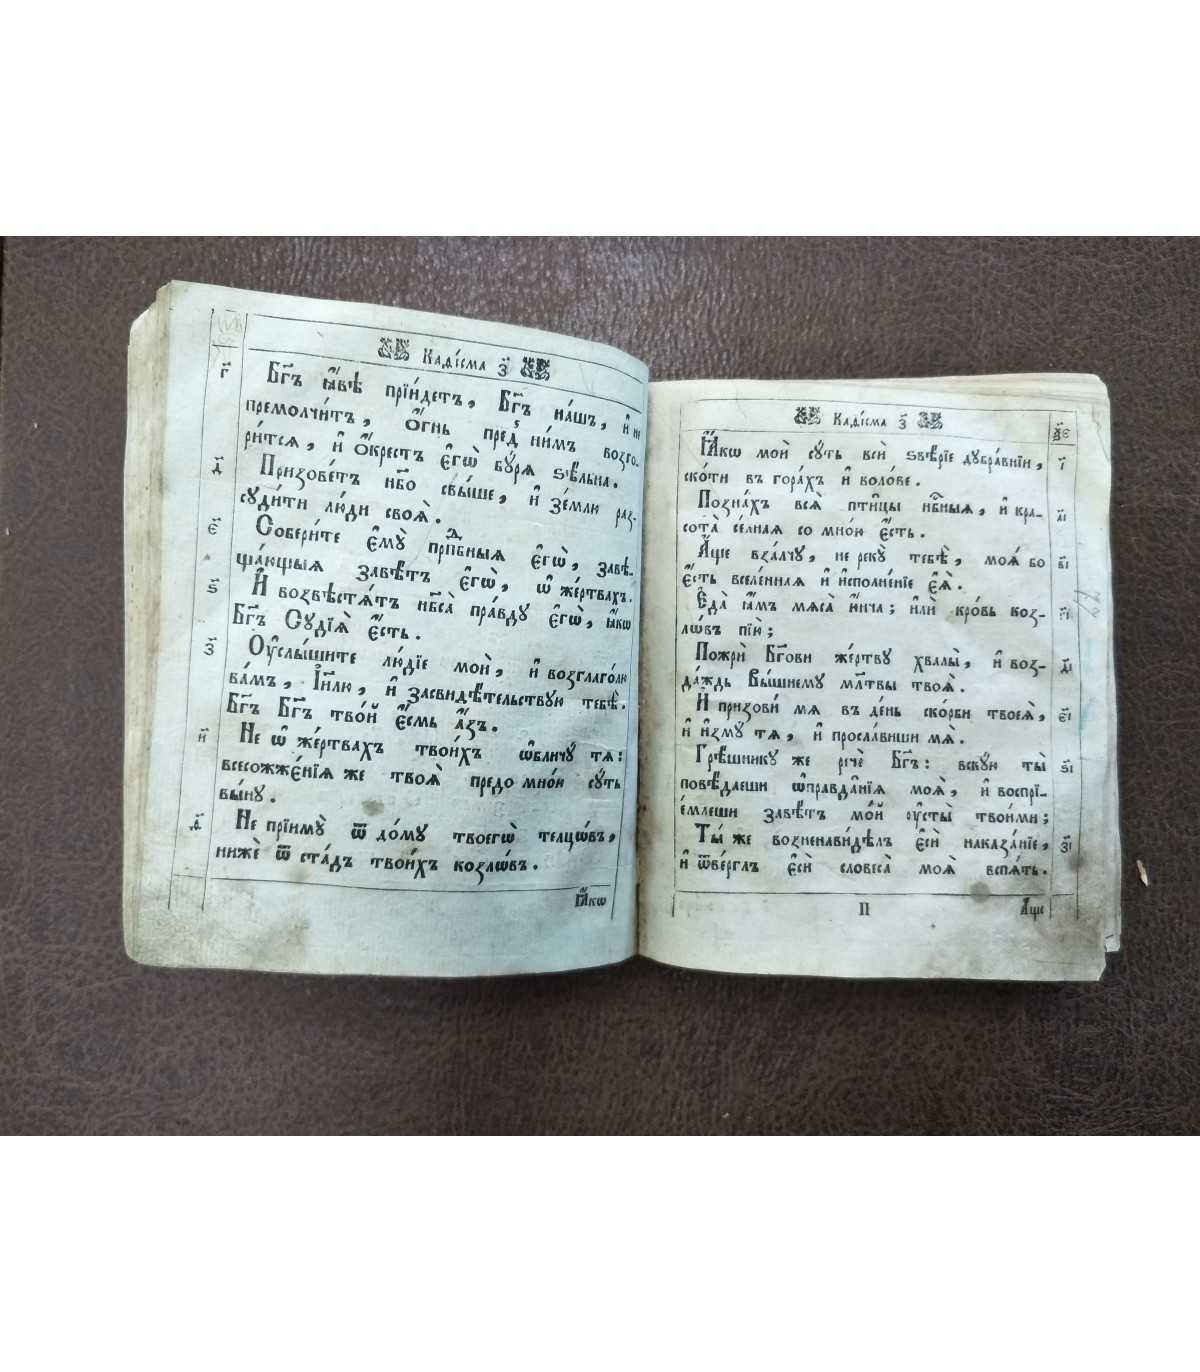 Каѳі́сма з҃
г҃ Бг҃ъ ꙗ҆́вѣ прїи́детъ, Бг҃ъ на́шъ, и҆ не
премолчи́тъ, О҆́гнь пред̾ ни́мъ возго-
ри́тся, и҆ О҆́крестъ є҆гѡ̀ бꙋ́ря ѕѣ́льна.
д҃ Призове́тъ нб҃о свы́ше, и҆ зе́млю раз-
сꙋди́ти лю́ди своѧ̀.
є҃ Собери́те є҆мꙋ̀ прпⷣбныя є҆гѡ̀, завѣ-
ща́ющыя завѣ́тъ є҆гѡ̀, ѡ҆ же́ртвахъ.
ѕ҃ И҆ возвѣстя́тъ нб҃са̀ пра́вдꙋ є҆гѡ̀, ꙗ҆́кѡ
Бг҃ъ Сꙋдїя̀ є҆́сть.
з҃ Оу҆слы́шите лю́дїе моѝ, и҆ возглаго́лю
ва́мъ, І҆и҃лю, и҆ засвидѣ́тельствꙋю тебѣ̀.
Бг҃ъ Бг҃ъ тво́й є҆́смь а҆́зъ.
и҃ Не ѡ҆ же́ртвахъ твои́хъ ѡ҆бличꙋ́ тя:
всесожже́нїя же твоя̀ предо мно́ю сꙋ́ть
вы́нꙋ.
ѳ҃ Не прїимꙋ̀ ѿ до́мꙋ твоегѡ̀ телцѡ́въ,
нижѐ ѿ ста́дъ твои́хъ козлѡ́въ.
Ꙗ҆́кѡ
Каѳі́сма з҃
Ꙗ҆́кѡ моѝ сꙋ́ть всѝ ѕвѣ́рїе дꙋбра́внїи, і҃
ско́ти въ гора́хъ и҆ воло́ве.
Позна́хъ вся̀ пти̑цы нбⷭ҇ныя, и҆ кра- а҃і
сота̀ се́лная со мно́ю є҆́сть.
А҆́ще вза́лчꙋ, не рекꙋ̀ тебѣ̀, моя́ бо в҃і
є҆́сть вселе́нная и҆ и҆сполне́нїе є҆я̀.
Є҆да̀ ꙗ҆́мъ мяса̀ ю҆́нча; и҆лѝ кро́вь коз- г҃і
лѡ́въ пїю̀;
Пожрѝ Бг҃ови же́ртвꙋ хвалы̀, и҆ воз- д҃і
да́ждь Вы́шнемꙋ мл҃твы твоя̀.
И҆ призови́ мя въ де́нь ско́рби твоея̀, є҃і
и҆ и҆змꙋ́ тя, и҆ просла́виши мя̀.
Грѣ́шникꙋ же речѐ Бг҃ъ: вскꙋ́ю ты̀ ѕ҃і
повѣ́даеши ѡ҆правда̑нїя моя̑, и҆ воспрї-
е́млеши завѣ́тъ мо́й оу҆сты̀ твои́ми;
Ты́ же возненави́дѣлъ є҆сѝ наказа́нїе, з҃і
и҆ ѿве́рглъ є҆сѝ словеса̀ моя̀ вспя́ть.
П
А҆́ще